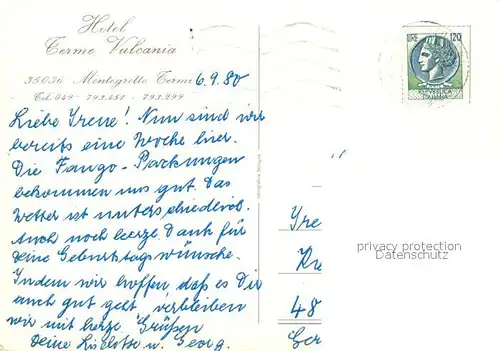 Hotel
Terme Vulcania
35036 Montegrotto Terme
Tel. 049 - 793.451 - 793.299
6.9.80
Liebe Irene! Nun sind wir
bereits eine Woche hier.
Die Fango-Packungen
bekommen uns gut. Das
Wetter ist unterschiedlich.
Auch noch herzl. Dank für
Deine Geburtstagswünsche.
Indem wir hoffen daß es Dir
auch gut geht, verbleiben
wir mit herzl. Grüßen
Deine Liselotte u. Georg.
LIRE 120
Ire
48
privacy protection
Datenschutz